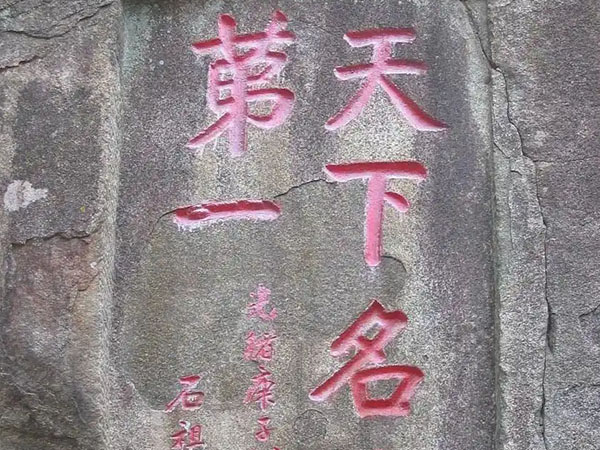 天下名
第一
光緒庚子
石祖